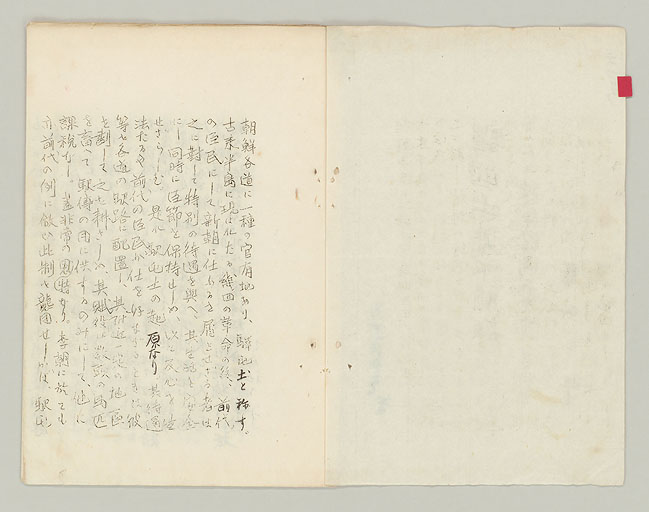 朝鮮各道に一種の官有地あり、驛屯土と称す。
古来半島に現はれたる幾回の革命の後、前代
の臣民にして新朝に仕ふるを屑とせざる者は
之に対して特別の待遇を與へ、其生
にし同時に臣節を保持せしめ、以て
せざらしむ 是れ驛屯土の起原なり 其待遇
法たるや前代の臣民か仕を 彼
等を各道の驛路に配置し 其附近一定の地区
を劃して之を耕さしめ 其賦役は 馬匹
を畜へて驛傳の用に供するのみにして、他に
課税なし。蓋非常の恩典なり。李朝に於ても
亦前代の例に倣ひ此制を襲用せしかば、驛屯